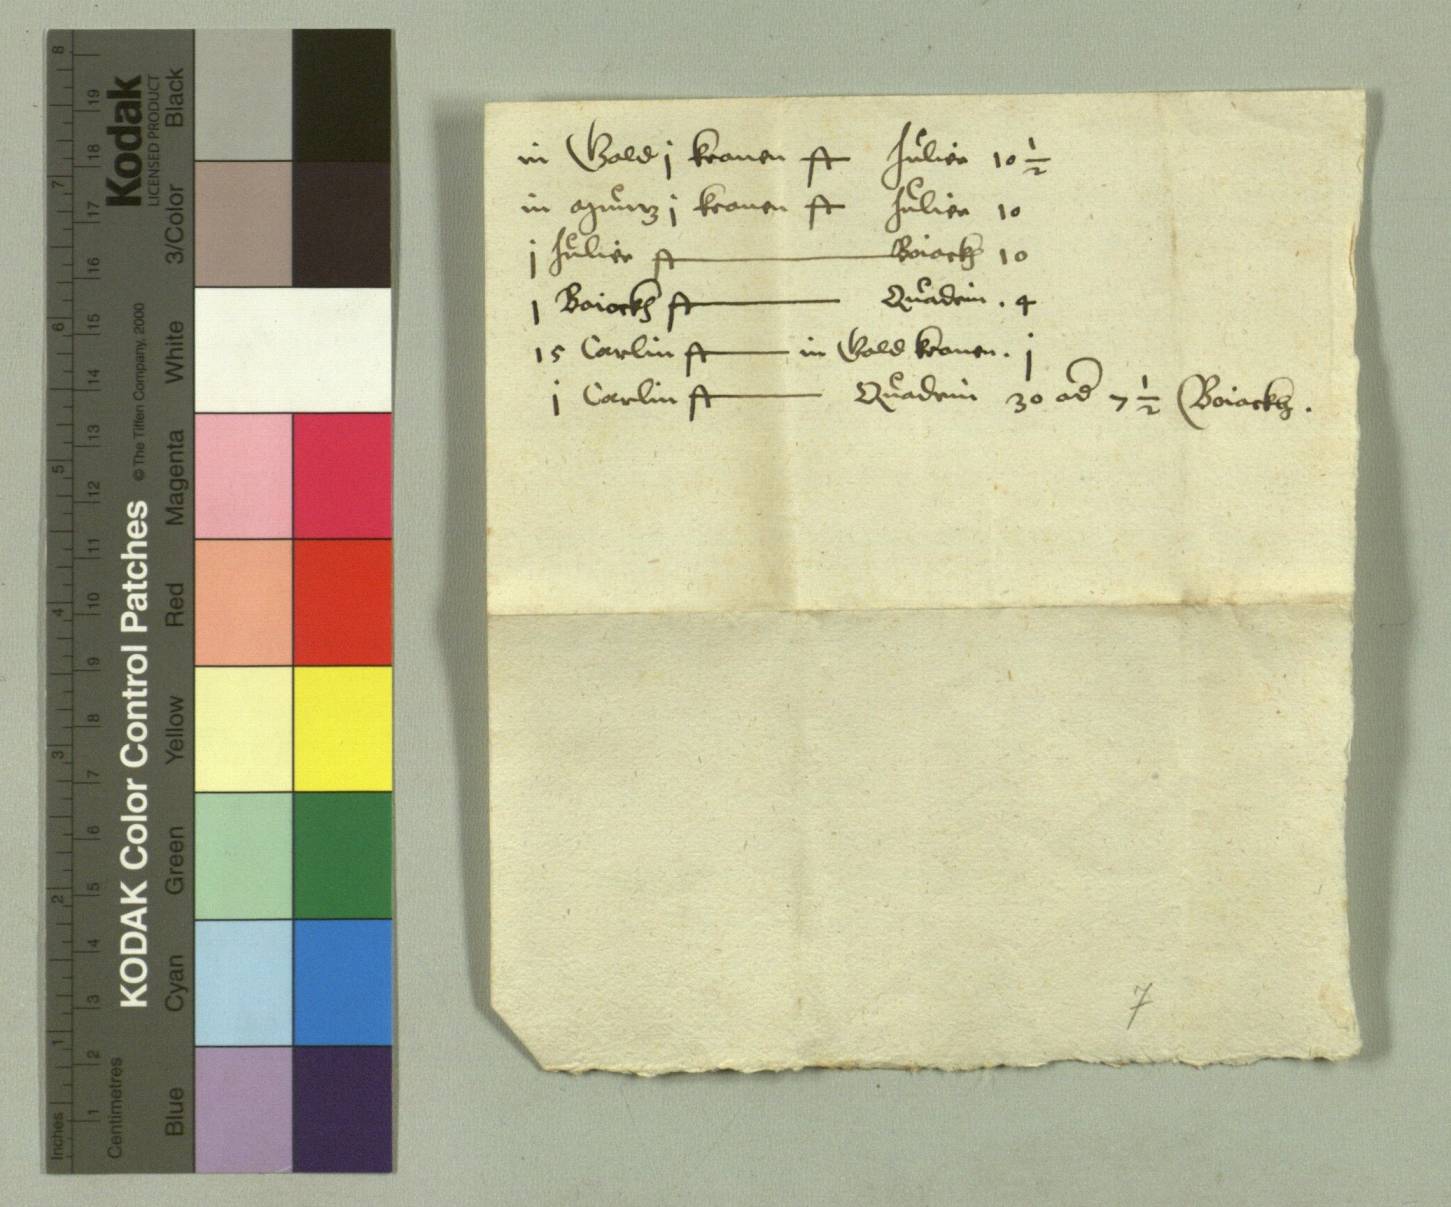 in Gold j kronen ist Julier 10 1/2
in Müntz j kronen ist Julier 10
j Julier ist Boiockh 10
1 Boiockh ist Quadrin . 4
15 Carlin ist in Gold kronen . j
j Carlin ist Quadrin 30 od 7 1/2 Boiockh .
7
KODAK Color Control Patches
© The Tiffen Company, 2000
Kodak
LICENSED PRODUCT
Inches 1 2 3 4 5 6 7 8
Centimetres 1 2 3 4 5 6 7 8 9 10 11 12 13 14 15 16 17 18 19
Blue Cyan Green Yellow Red Magenta White 3/Color Black